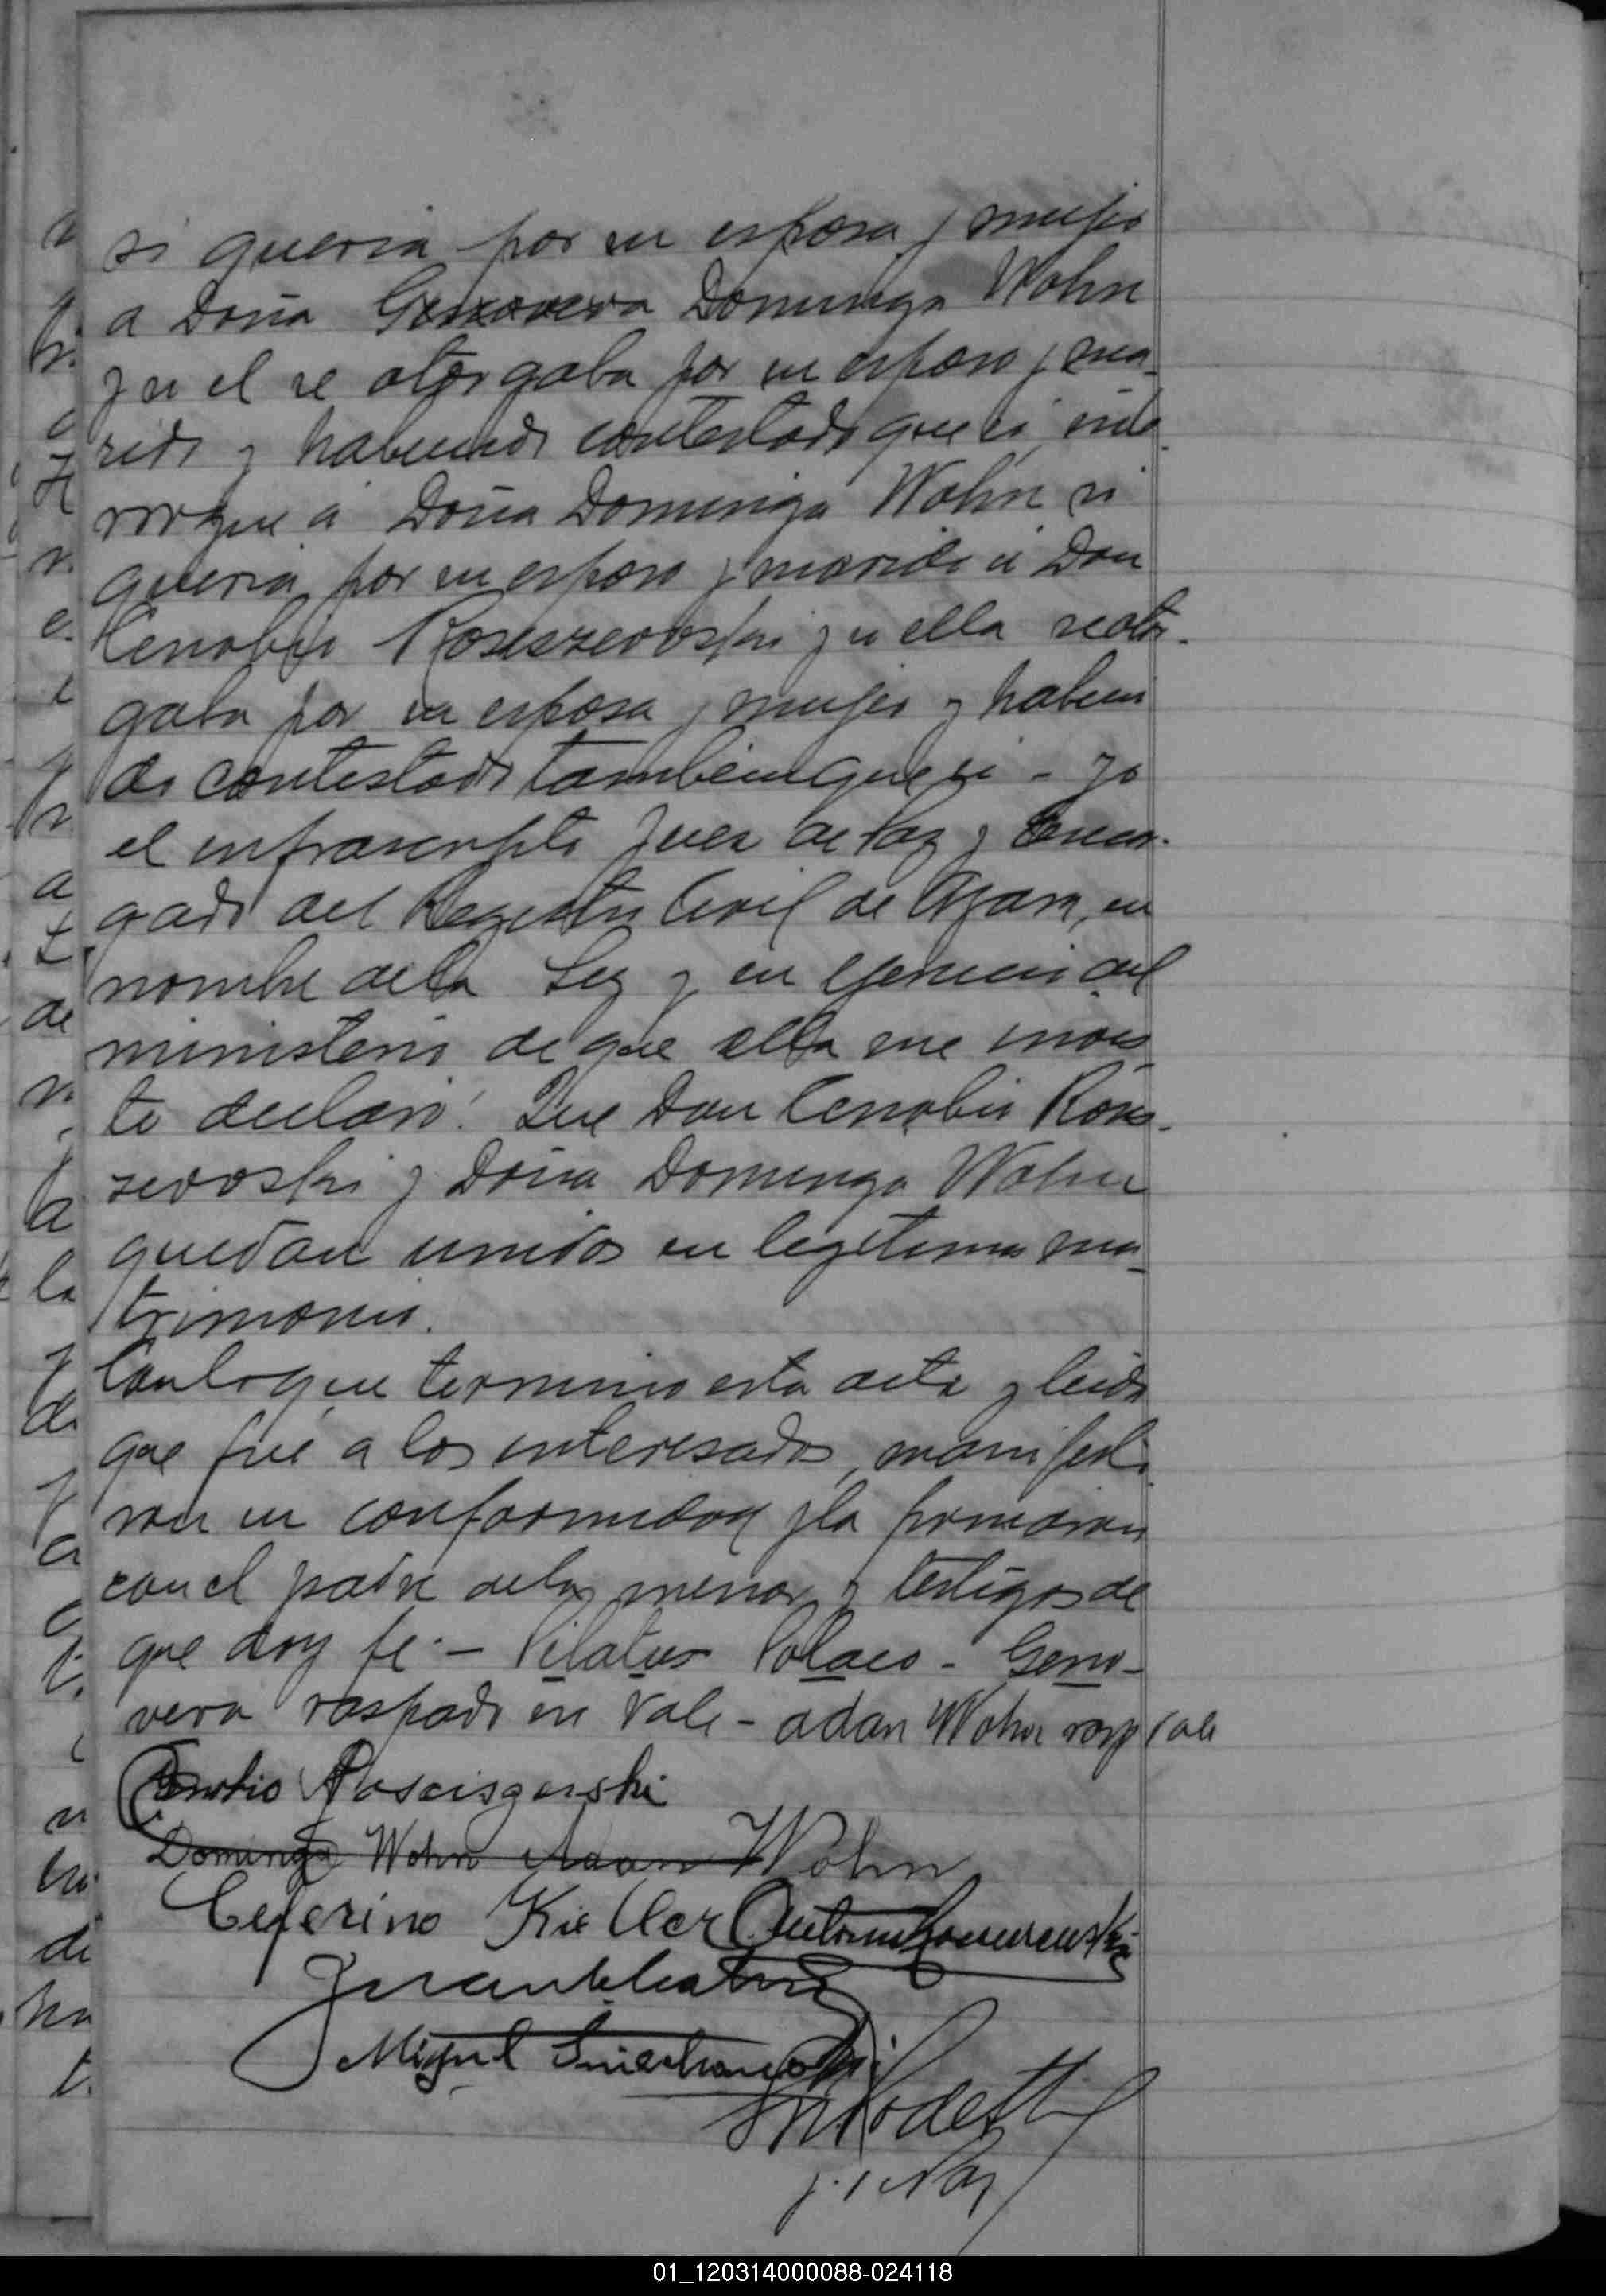 si queria por su esposa y mujer
a Doña Genoveva Dominga Wohn
y si el se otorgaba por su esposo y ma-
rido y habiendo contestado que si, inte-
rrogue a Doña Dominga Wohn si
queria por su esposo y marido a Don
Cenobio Rosiszewoski y si ella se otor-
gaba por su esposa y mujer y habien
do contestado tambien que si - yo
el infrascripto Juez de Paz y Encar-
gado del Registro Civil de Azara, en
nombre de la Ley y en ejercicio del
ministerio de que ella me invis
te declaro: Que Don Cenobio Rosis-
zewoski y Doña Dominga Wohn
quedan unidos en legitimo ma-
trimonio.
Con lo que termino esta acta y leida
que fué a los interesados, manifesta
ron su conformidad y la firmaron
con el padre de la menor y testigos de
que doy fe.- Pilatus Polaco - Geno-
veva raspado sin Vale - adan Wohn rasp vale
Cenobio
Dominga Wohn Adan Wohn
Ceferino Kieller Antonio
Juan
Miguel
J. de Paz
a
la
de
a
di
ha
t.
01_120314000088-024118